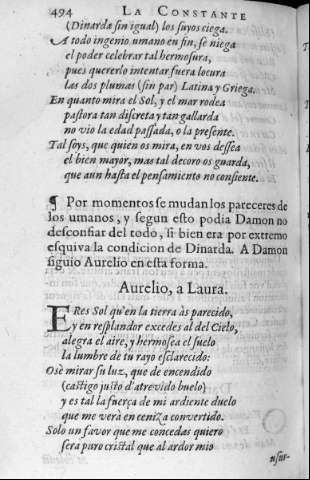 494 LA CONSTANTE
(Dinarda sin igual) los suyos ciega.
A todo ingenio umano en fin, se niega
el poder celebrar tal hermosura,
pues quererlo intentar fuera locura
las dos plumas (sin par) Latina y Griega.
En quanto mira el Sol, y el mar rodea
pastora tan discreta y tan gallarda
no vio la edad passada, o la presente.
Tal soys, que quien os mira, en vos dessea
el bien mayor, mas tal decoro os guarda,
que aun hasta el pensamiento no consiente.
¶ Por momentos se mudan los pareceres de
los umanos, y segun esto podia Damon no
desconfiar del todo, si bien era por extremo
esquiva la condicion de Dinarda. A Damon
siguio Aurelio en esta forma.
Aurelio, a Laura.
ERes Sol qu'en la tierra às parecido,
y en resplandor excedes al del Cielo,
alegra el aire, y hermosea el suelo
la lumbre de tu rayo esclarecido:
Osè mirar su luz, que de encendido
(castigo justo d'atrevido buelo)
y es tal la fuerça de mi ardiente duelo
que me verà en ceniza convertido.
Solo un favor que me concedas quiero
sera puro cristal que al ardor mio
usur-